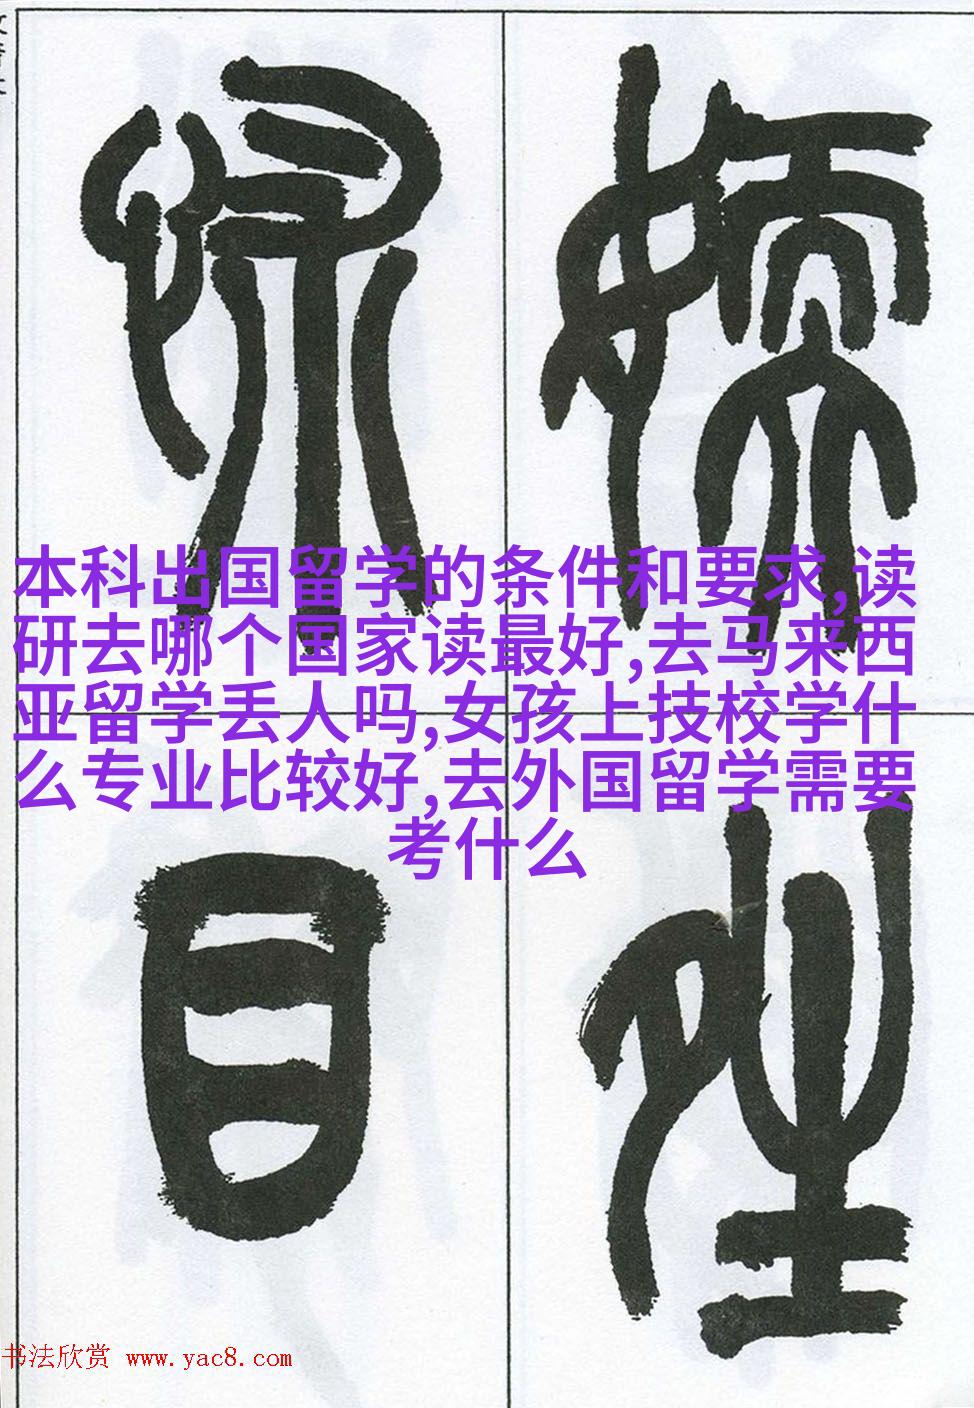 本科出国留学的条件和要求,读
研去哪个国家读最好,去马来西
亚留学丢人吗,女孩上技校学什
么专业比较好,去外国留学需要
考什么
目
书法欣赏 www.yac8.com